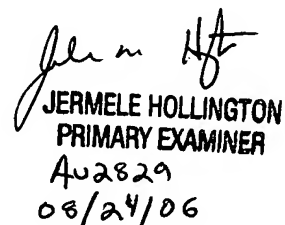 JERMELE HOLLINGTON
PRIMARY EXAMINER
AU2829
08/24/06